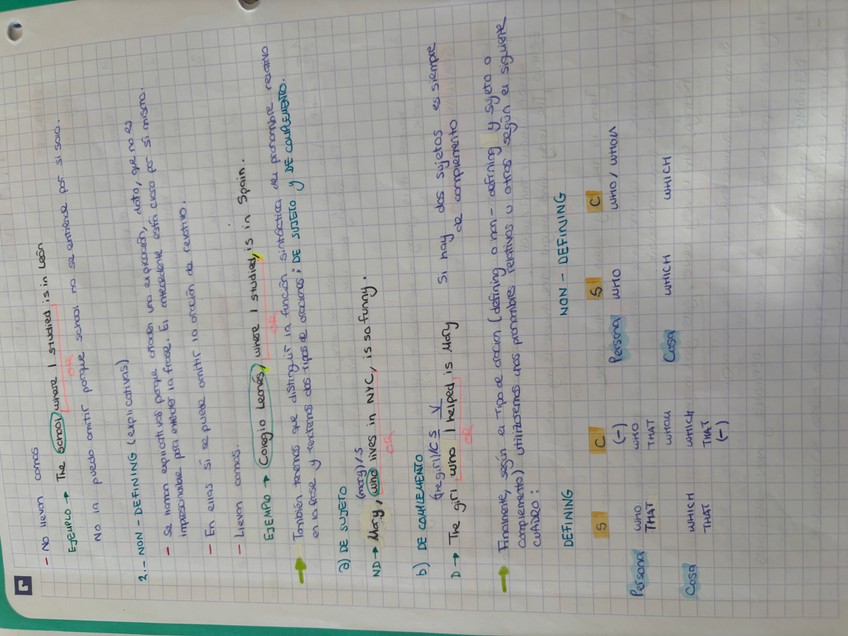 - No llevan comas
EJEMPLO → The school where I studied is in León
OR
No la puedo omitir porque school no se entiende por si solo.
2.- NON-DEFINING (explicativas)
- Se llaman explicativas porque añaden una explicación, dato, que no es
imprescindible para entender la frase. El antecedente está claro por si mismo.
- En ellas si se puede omitir la oración de relativo.
- Llevan comas.
EJEMPLO → Colegio Leonés, where I studied, is in Spain.
OR
→ También tenemos que distinguir la función sintáctica del pronombre relativo
en la frase y tendremos dos tipos de oraciones: DE SUJETO y DE COMPLEMENTO.
a) DE SUJETO
(mary)/S
ND → Mary, who lives in NYC, is so funny.
OR
b) DE COMPLEMENTO
(the girl)/C S V
D → The girl who I helped is Mary
OR
Si hay dos sujetos es siempre
de complemento
→ Finalmente, según el tipo de oración (defining o non-defining y sujeto o
complemento) utilizaremos unos pronombres relativos u otros según el siguiente
cuadro:
DEFINING NON-DEFINING
S C S C
Persona WHO (-) Persona WHO WHO/WHOM
THAT WHO
THAT
WHOM
Cosa WHICH WHICH Cosa WHICH WHICH
THAT THAT
(-)